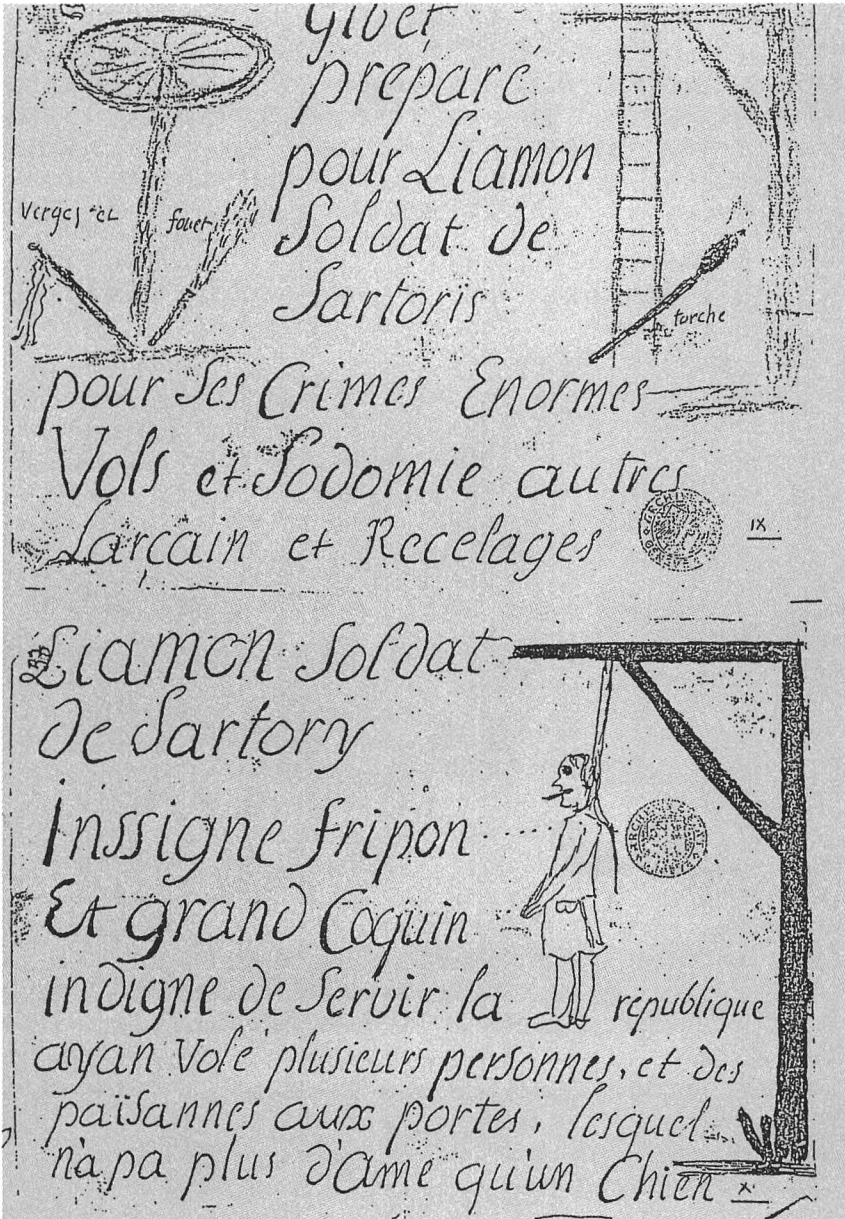 Gibet
préparé
pour Liamon
Soldat de
Sartoris
verges et
fouet
torche
pour Ses Crimes Enormes
Vols et Sodomie autres
Larcain et Recelages
IX
Liamon Soldat
de Sartory
Inssigne fripon
Et grand Coquin
indigne de Servir la république
ayan Volé plusieurs personnes, et des
païsannes aux portes, lesquel
n'a pa plus d'ame qu'un Chien
X